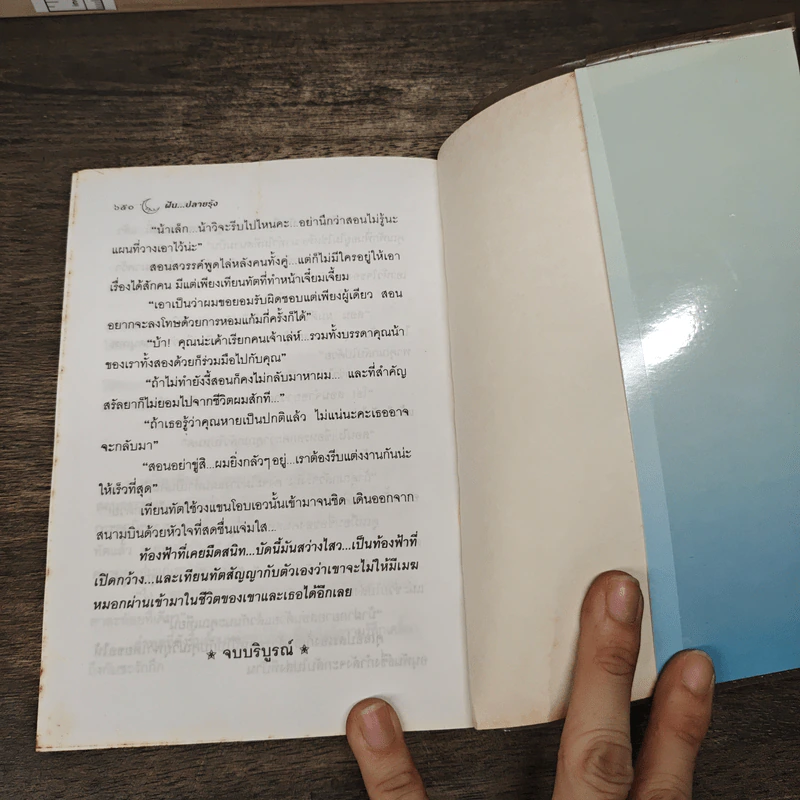 ๖๕๐ ฝัน...ปลายรุ้ง
"น้าเล็ก...น้าวิจะรีบไปไหนคะ...อย่านึกว่าสอนไม่รู้นะ
แผนที่วางเอาไว้น่ะ"
สอนสวรรค์พูดไล่หลังคนทั้งคู่...แต่ก็ไม่มีใครอยู่ให้เอา
เรื่องได้สักคน มีแต่เพียงเทียนทัตที่ทำหน้าเจี๋ยมเจี้ยม
"เอาเป็นว่าผมขอยอมรับผิดชอบแต่เพียงผู้เดียว สอน
อยากจะลงโทษด้วยการหอมแก้มกี่ครั้งก็ได้"
"บ้า! คุณน่ะเค้าเรียกคนเจ้าเล่ห์...รวมทั้งบรรดาคุณน้า
ของเราทั้งสองด้วยก็ร่วมมือไปกับคุณ"
"ถ้าไม่ทำยังงี้สอนก็คงไม่กลับมาหาผม... และที่สำคัญ
สรัลยาก็ไม่ยอมไปจากชีวิตผมสักที..."
"ถ้าเธอรู้ว่าคุณหายเป็นปกติแล้ว ไม่แน่นะคะเธออาจ
จะกลับมา"
"สอนอย่าขู่สิ...ผมยิ่งกลัวๆ อยู่...เราต้องรีบแต่งงานกันน่ะ
ให้เร็วที่สุด"
เทียนทัตใช้วงแขนโอบเอวนั้นเข้ามาจนชิด เดินออกจาก
สนามบินด้วยหัวใจที่สดชื่นแจ่มใส...
ท้องฟ้าที่เคยมืดสนิท...บัดนี้มันสว่างไสว...เป็นท้องฟ้าที่
เปิดกว้าง...และเทียนทัตสัญญากับตัวเองว่าเขาจะไม่ให้มีเมฆ
หมอกผ่านเข้ามาในชีวิตของเขาและเธอได้อีกเลย
จบบริบูรณ์